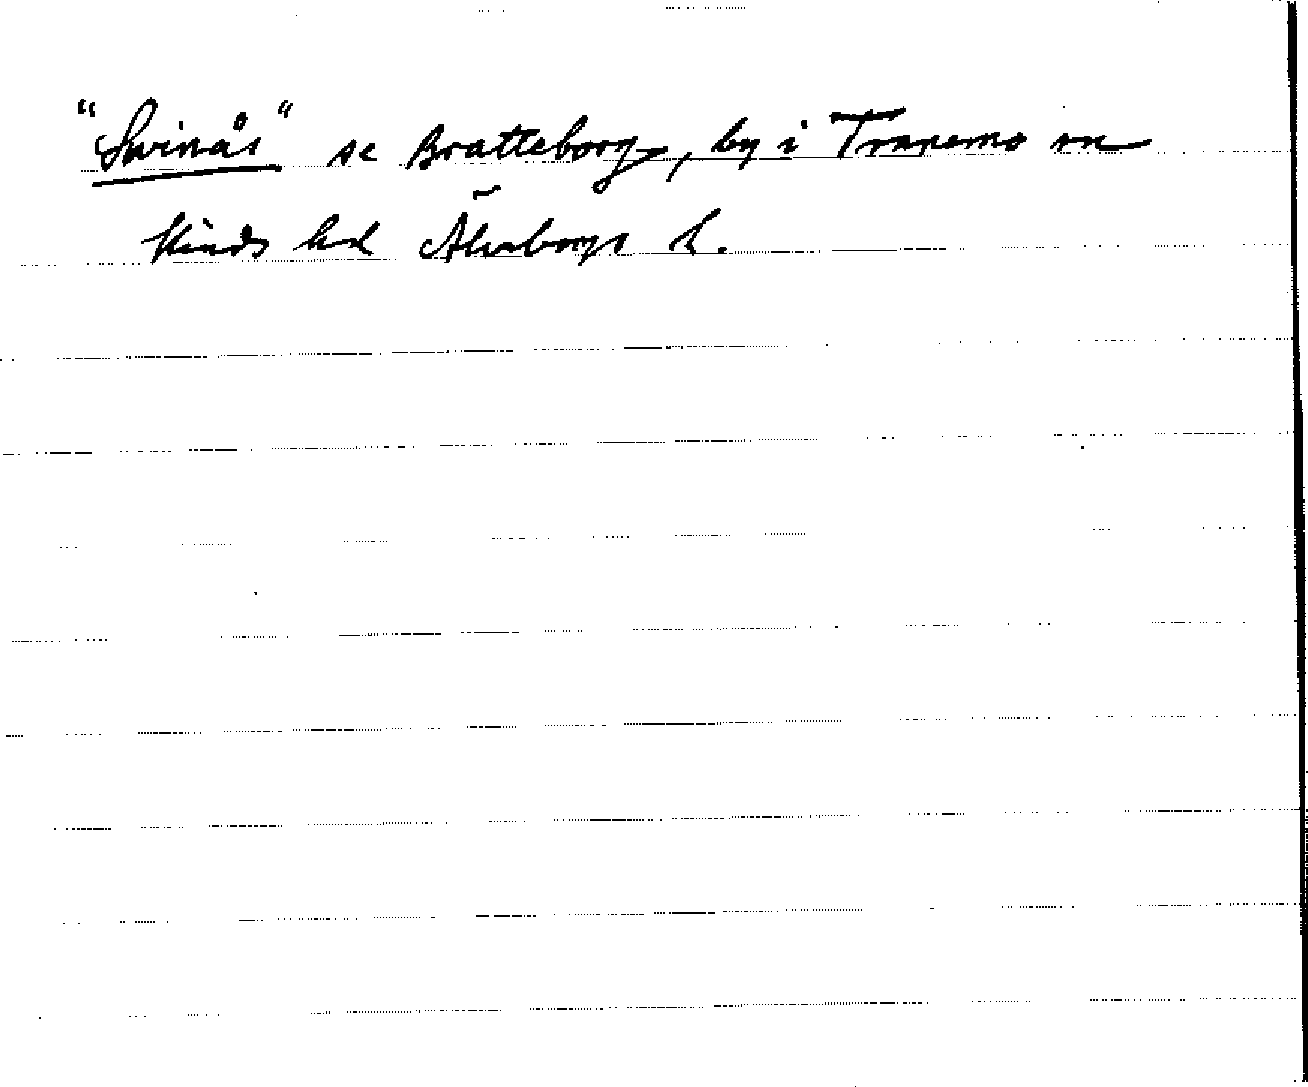 "Svinås" se Bratteborg, by i Tranemo sn
Kinds hd Älvsborgs l.